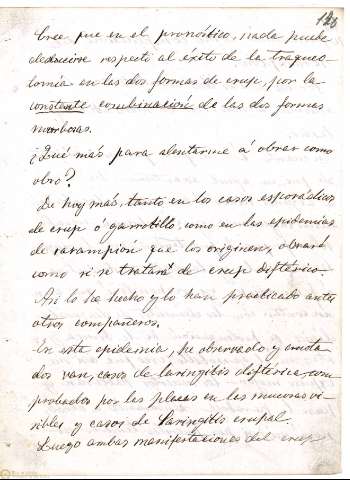 123
Cree que en el pronóstico, nada puede
deducirse respecto al éxito de la traqueo-
tomía en las dos formas de crup, por la
constante combinación de las dos formas
morbosas.
¿Qué más para alentarme á obrar como
obro?
De hoy más, tanto en los casos esporádicos
de crup ó garrotillo, como en las epidemias
de sarampión que los originen, obraré
como si se tratara de crup diftérico.
Así lo he hecho y lo han practicado antes
otros compañeros.
En esta epidemia, he observado y anota-
dos van, casos de laringitis diftérica com-
probados por las placas en las mucosas vi-
sibles y casos de laringitis crupal.
Luego ambas manifestaciones del crup